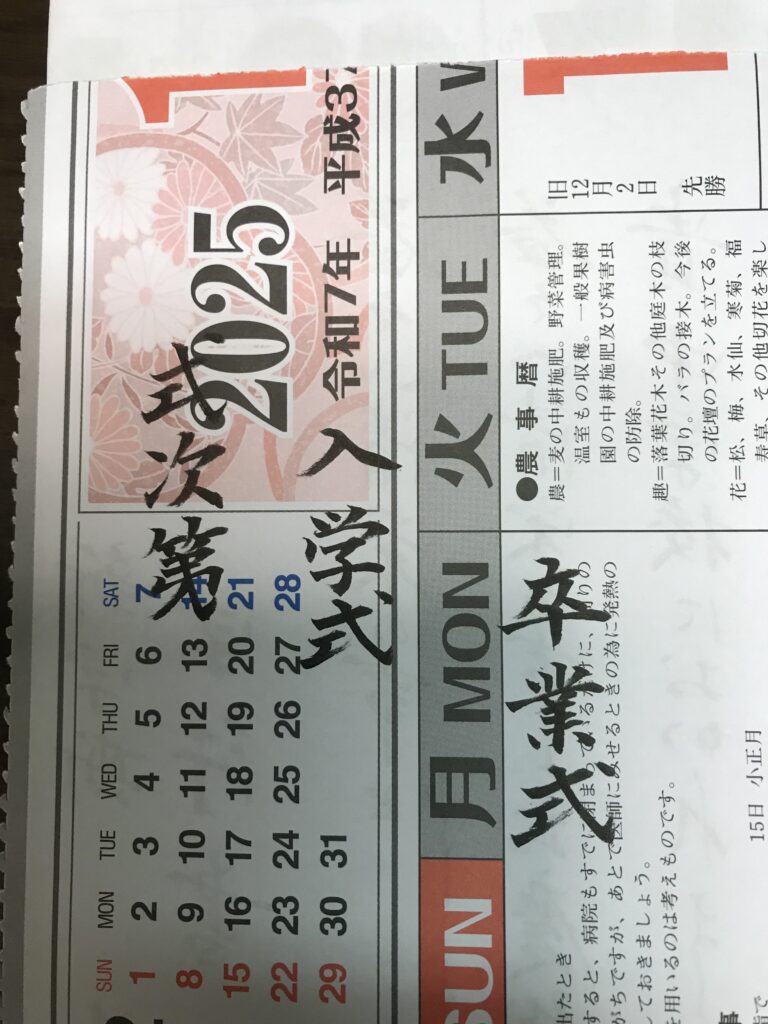 式次第
入学式
卒業式
1
2025
令和7年 平成37
SUN MON TUE WED THU FRI SAT
1 2 3 4 5 6 7
8 9 10 11 12 13 14
15 16 17 18 19 20 21
22 23 24 25 26 27 28
29 30 31
SUN 月 MON 火 TUE 水 W
1
旧12月2日
先勝
●農事暦
農=麦の中耕施肥。野菜管理。
温室もの収穫。一般果樹
園の中耕施肥及び病害虫
の防除。
趣=落葉花木その他庭木の枝
切り。バラの接木。今後
の花壇のプランを立てる。
花=松、梅、水仙、寒菊、福
寿草、その他切花を楽し
出たとき
すると、病院もすでに
がちですが、あとで医師にみせるときの為に発熱の
しておきましょう。
を用いるのは考えものです。
15日 小正月
事